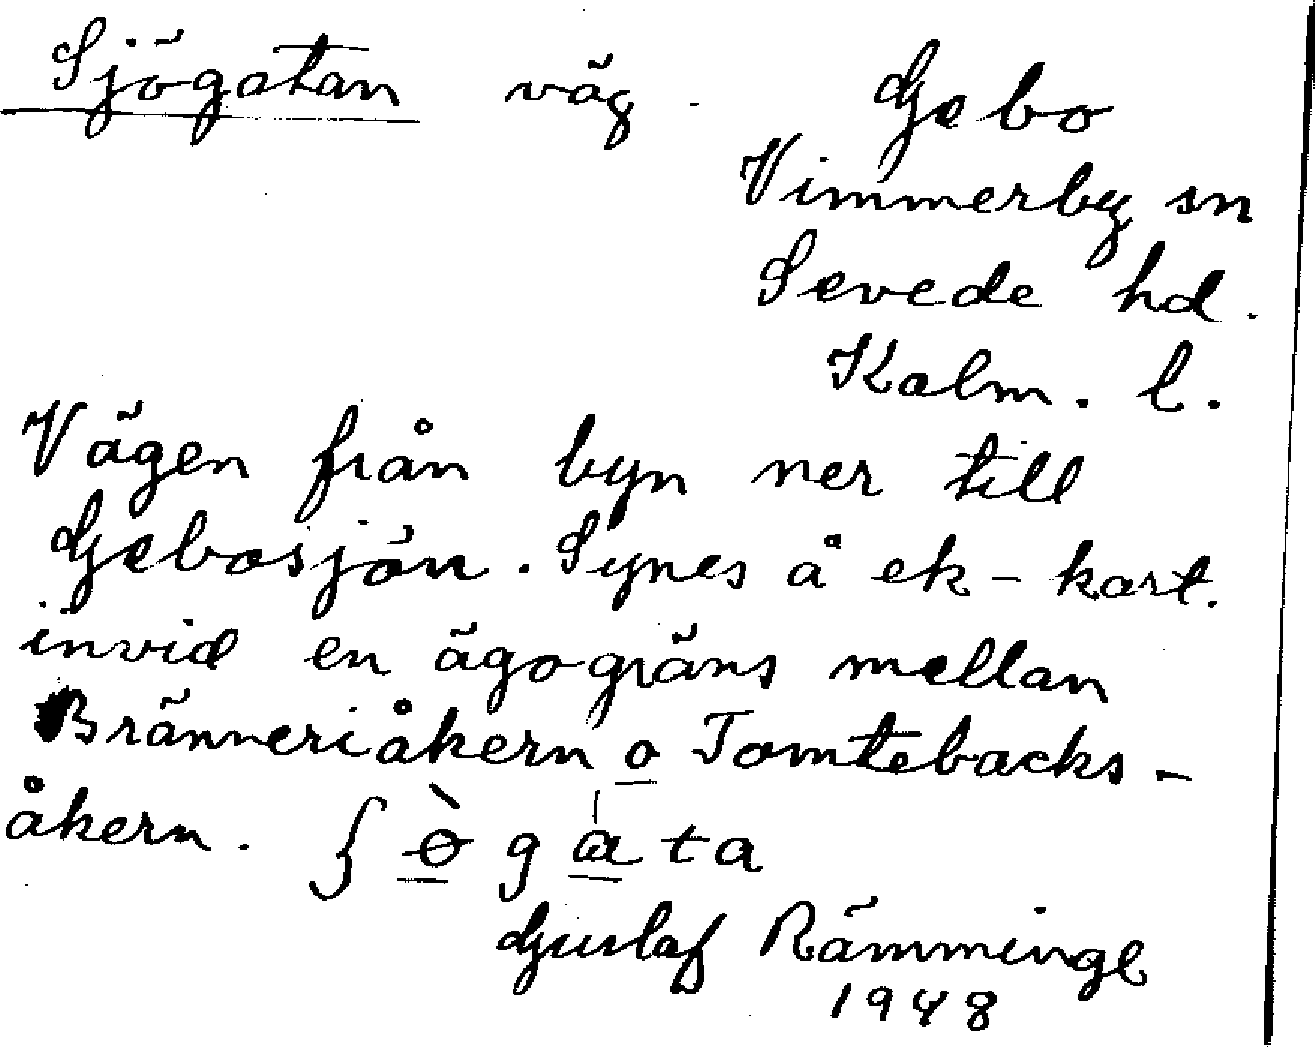 Sjögatan väg. Gebo
Vimmerby sn
Sevede hd.
Kalm. l.
Vägen från byn ner till
Gebosjön. Synes å ek-kart.
invid en ägogräns mellan
Bränneriåkern o Tomtebacks-
åkern. ʃɵ̀gɑ́ta
Gustaf Rämminge
1948